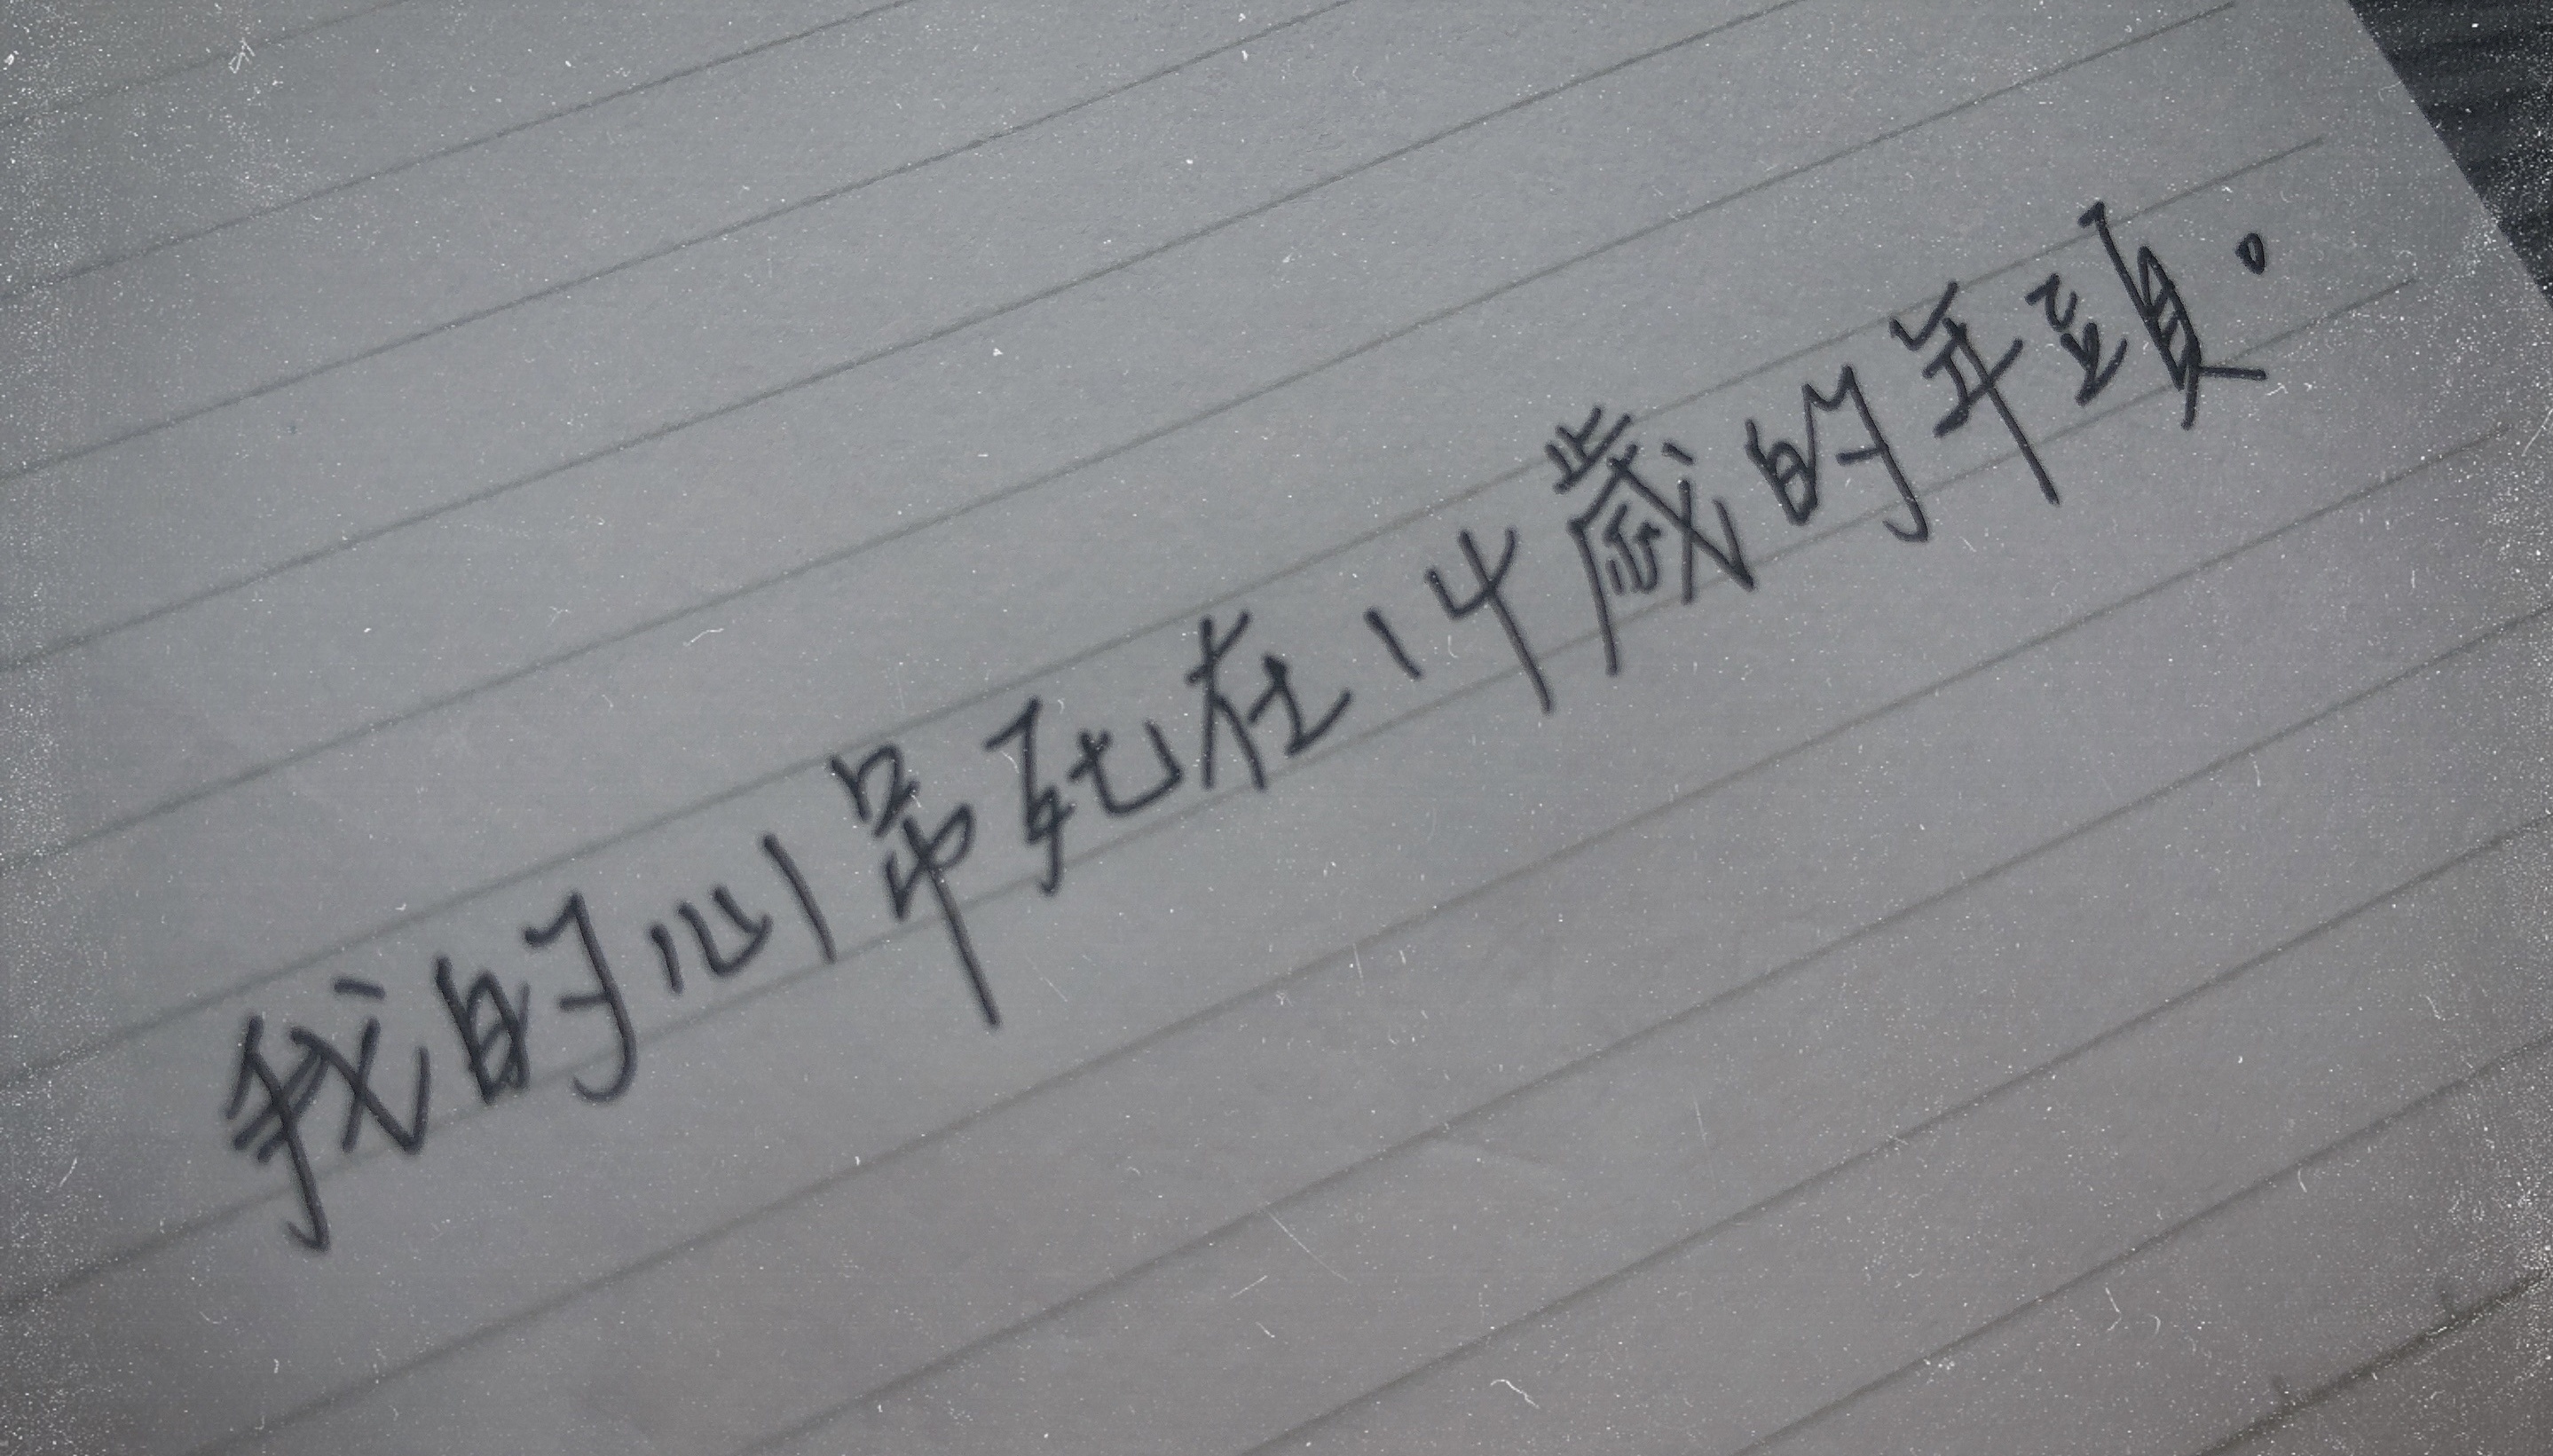 我的心吊死在14歲的年頭。